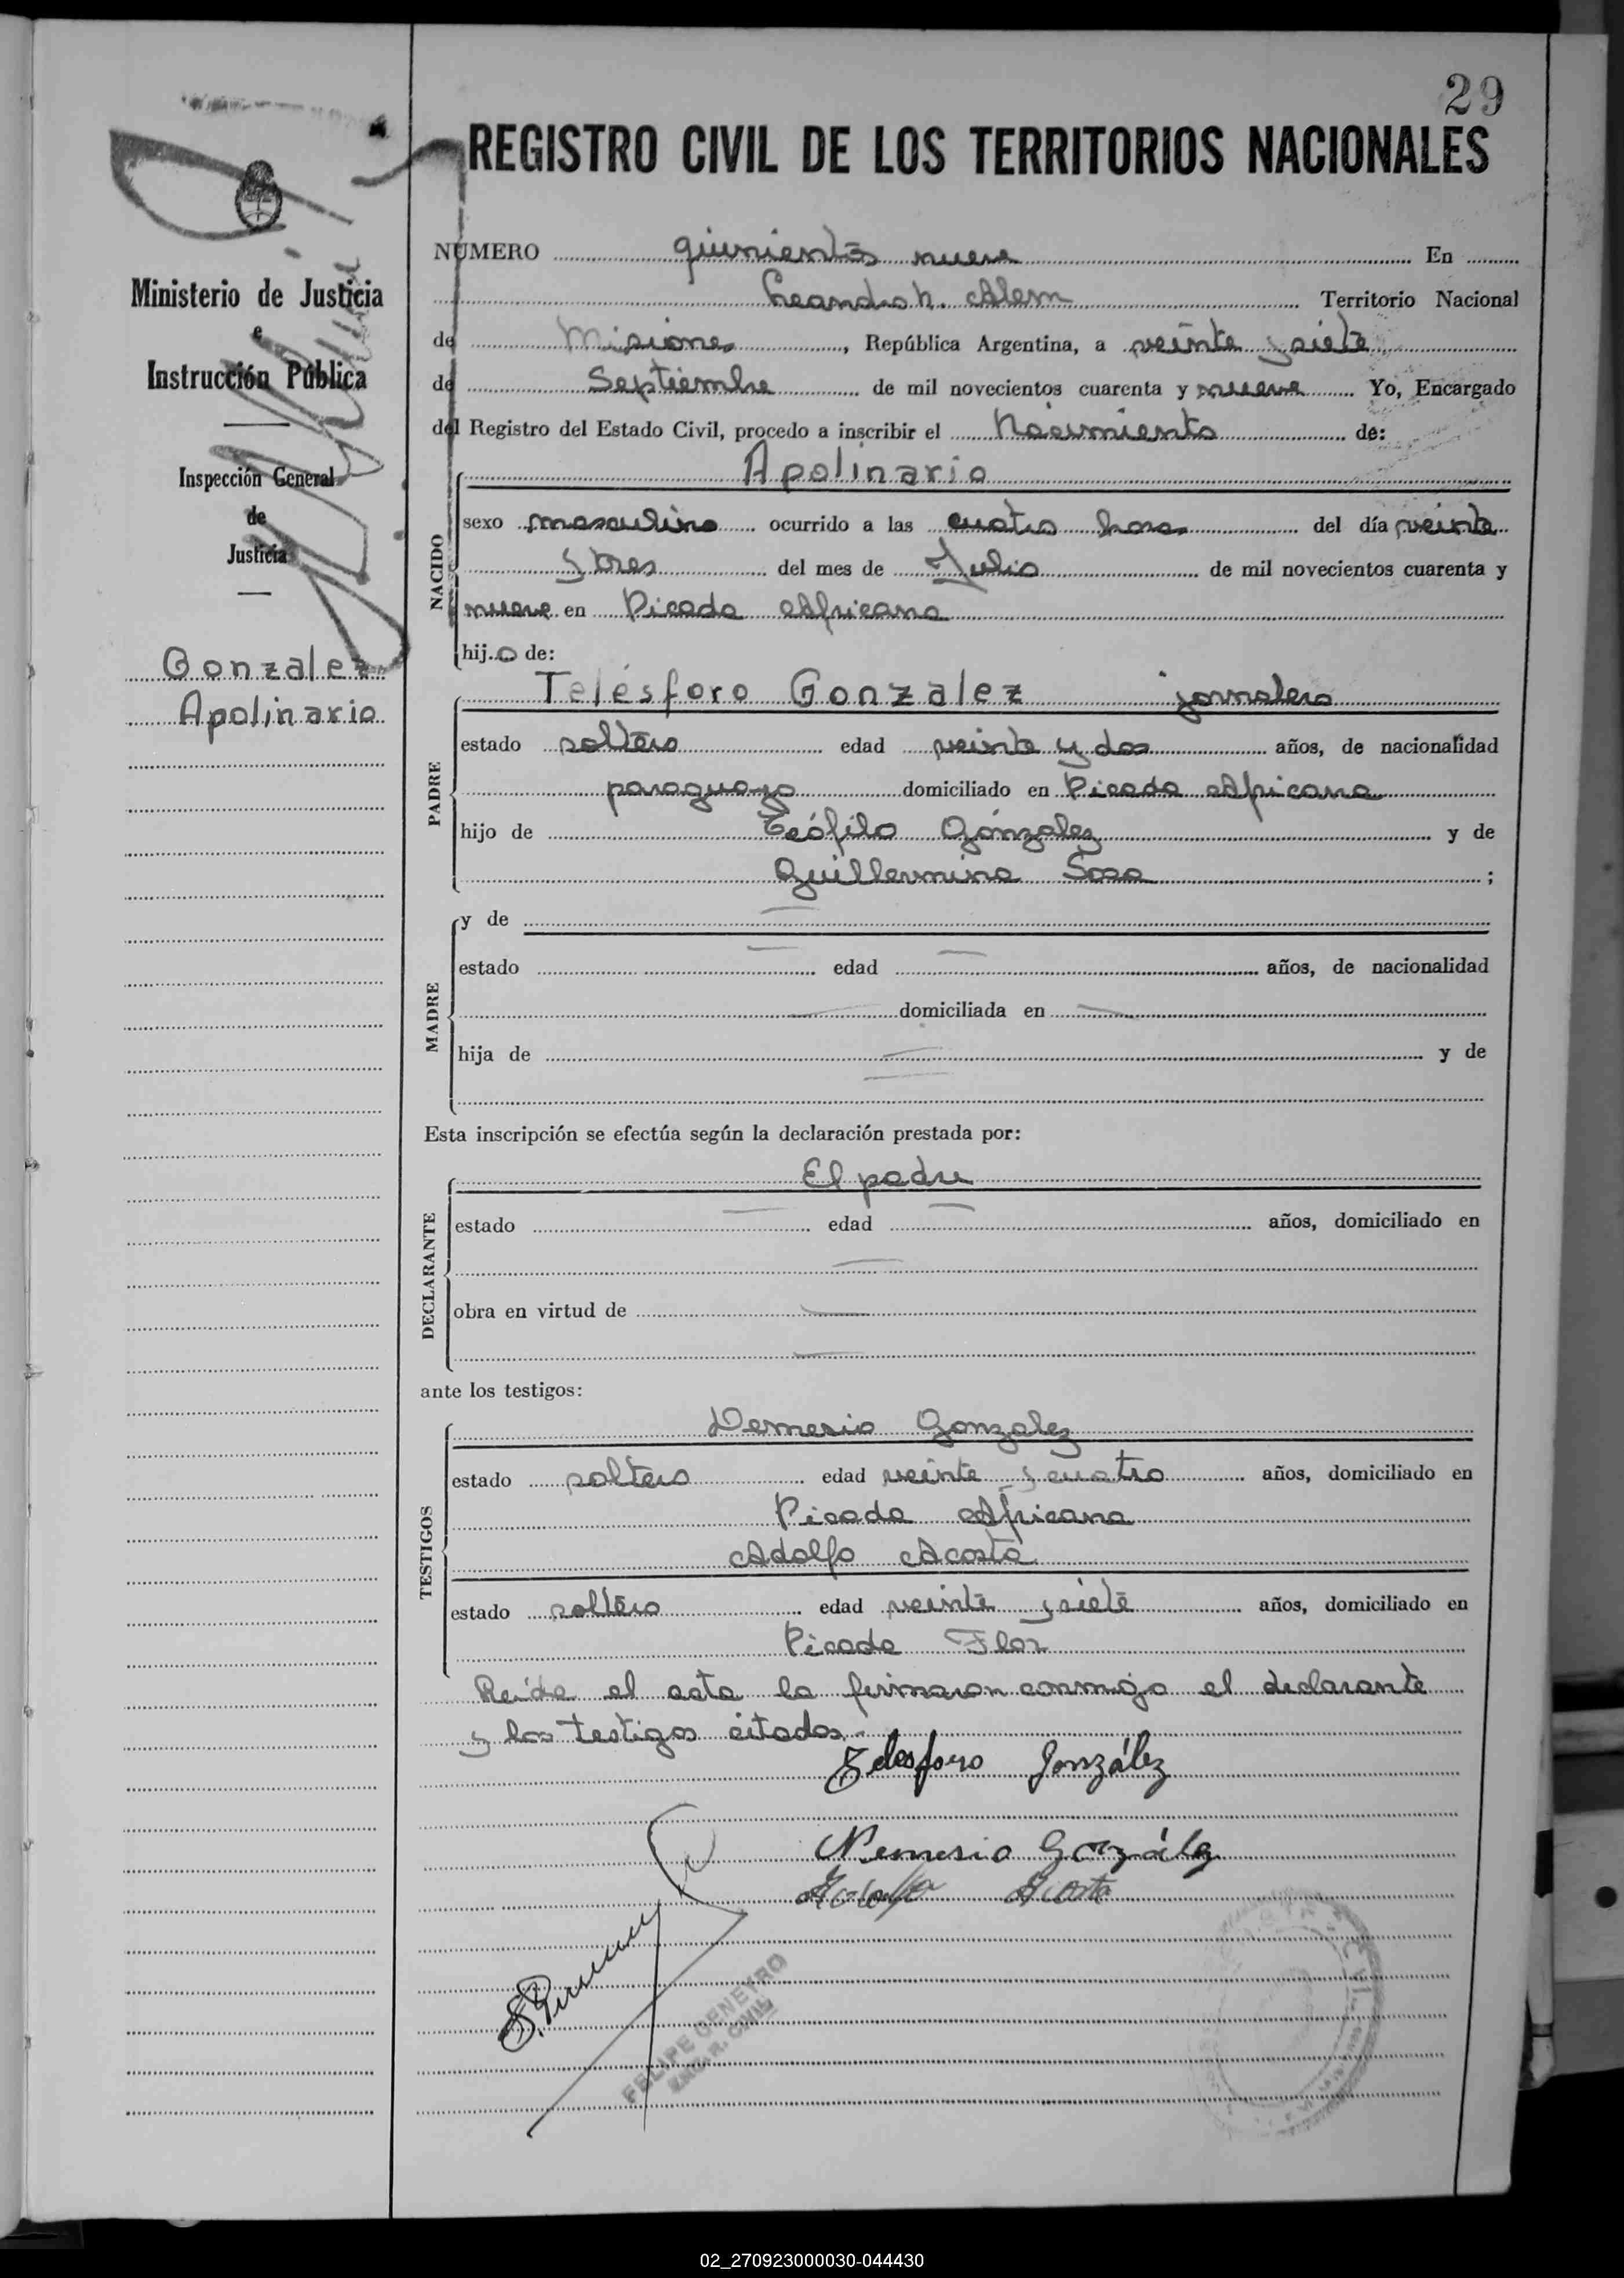 29
REGISTRO CIVIL DE LOS TERRITORIOS NACIONALES
Ministerio de Justicia
e
Instrucción Pública
Inspección General
de
Justicia
Gonzalez
Apolinario
NÚMERO quinientos nueve En
Leandro N. Alem Territorio Nacional
de Misiones, República Argentina, a veinte y siete
de Septiembre de mil novecientos cuarenta y nueve Yo, Encargado
del Registro del Estado Civil, procedo a inscribir el Nacimiento de:
NACIDO
Apolinario
sexo masculino ocurrido a las cuatro horas del día veinte
y tres del mes de Julio de mil novecientos cuarenta y
nueve en Picada Africana
hijo de:
PADRE
Telésforo Gonzalez jornalero
estado soltero edad veinte y dos años, de nacionalidad
paraguaya domiciliado en Picada Africana
hijo de Teófilo Gonzalez y de
Guillermina Sosa ;
MADRE
y de
estado edad años, de nacionalidad
domiciliada en
hija de y de
Esta inscripción se efectúa según la declaración prestada por:
DECLARANTE
El padre
estado edad años, domiciliado en
obra en virtud de
ante los testigos:
TESTIGOS
Nemesio Gonzalez
estado soltero edad veinte y cuatro años, domiciliado en
Picada Africana
Adolfo Acosta
estado soltero edad veinte y siete años, domiciliado en
Picada Flor
Leída el acta la firmaron conmigo el declarante
y los testigos citados.-
Telesforo González
Nemesio González
Adolfo Acosta
FELIPE GENEYRO
ENC. R. CIVIL
02_270923000030-044430